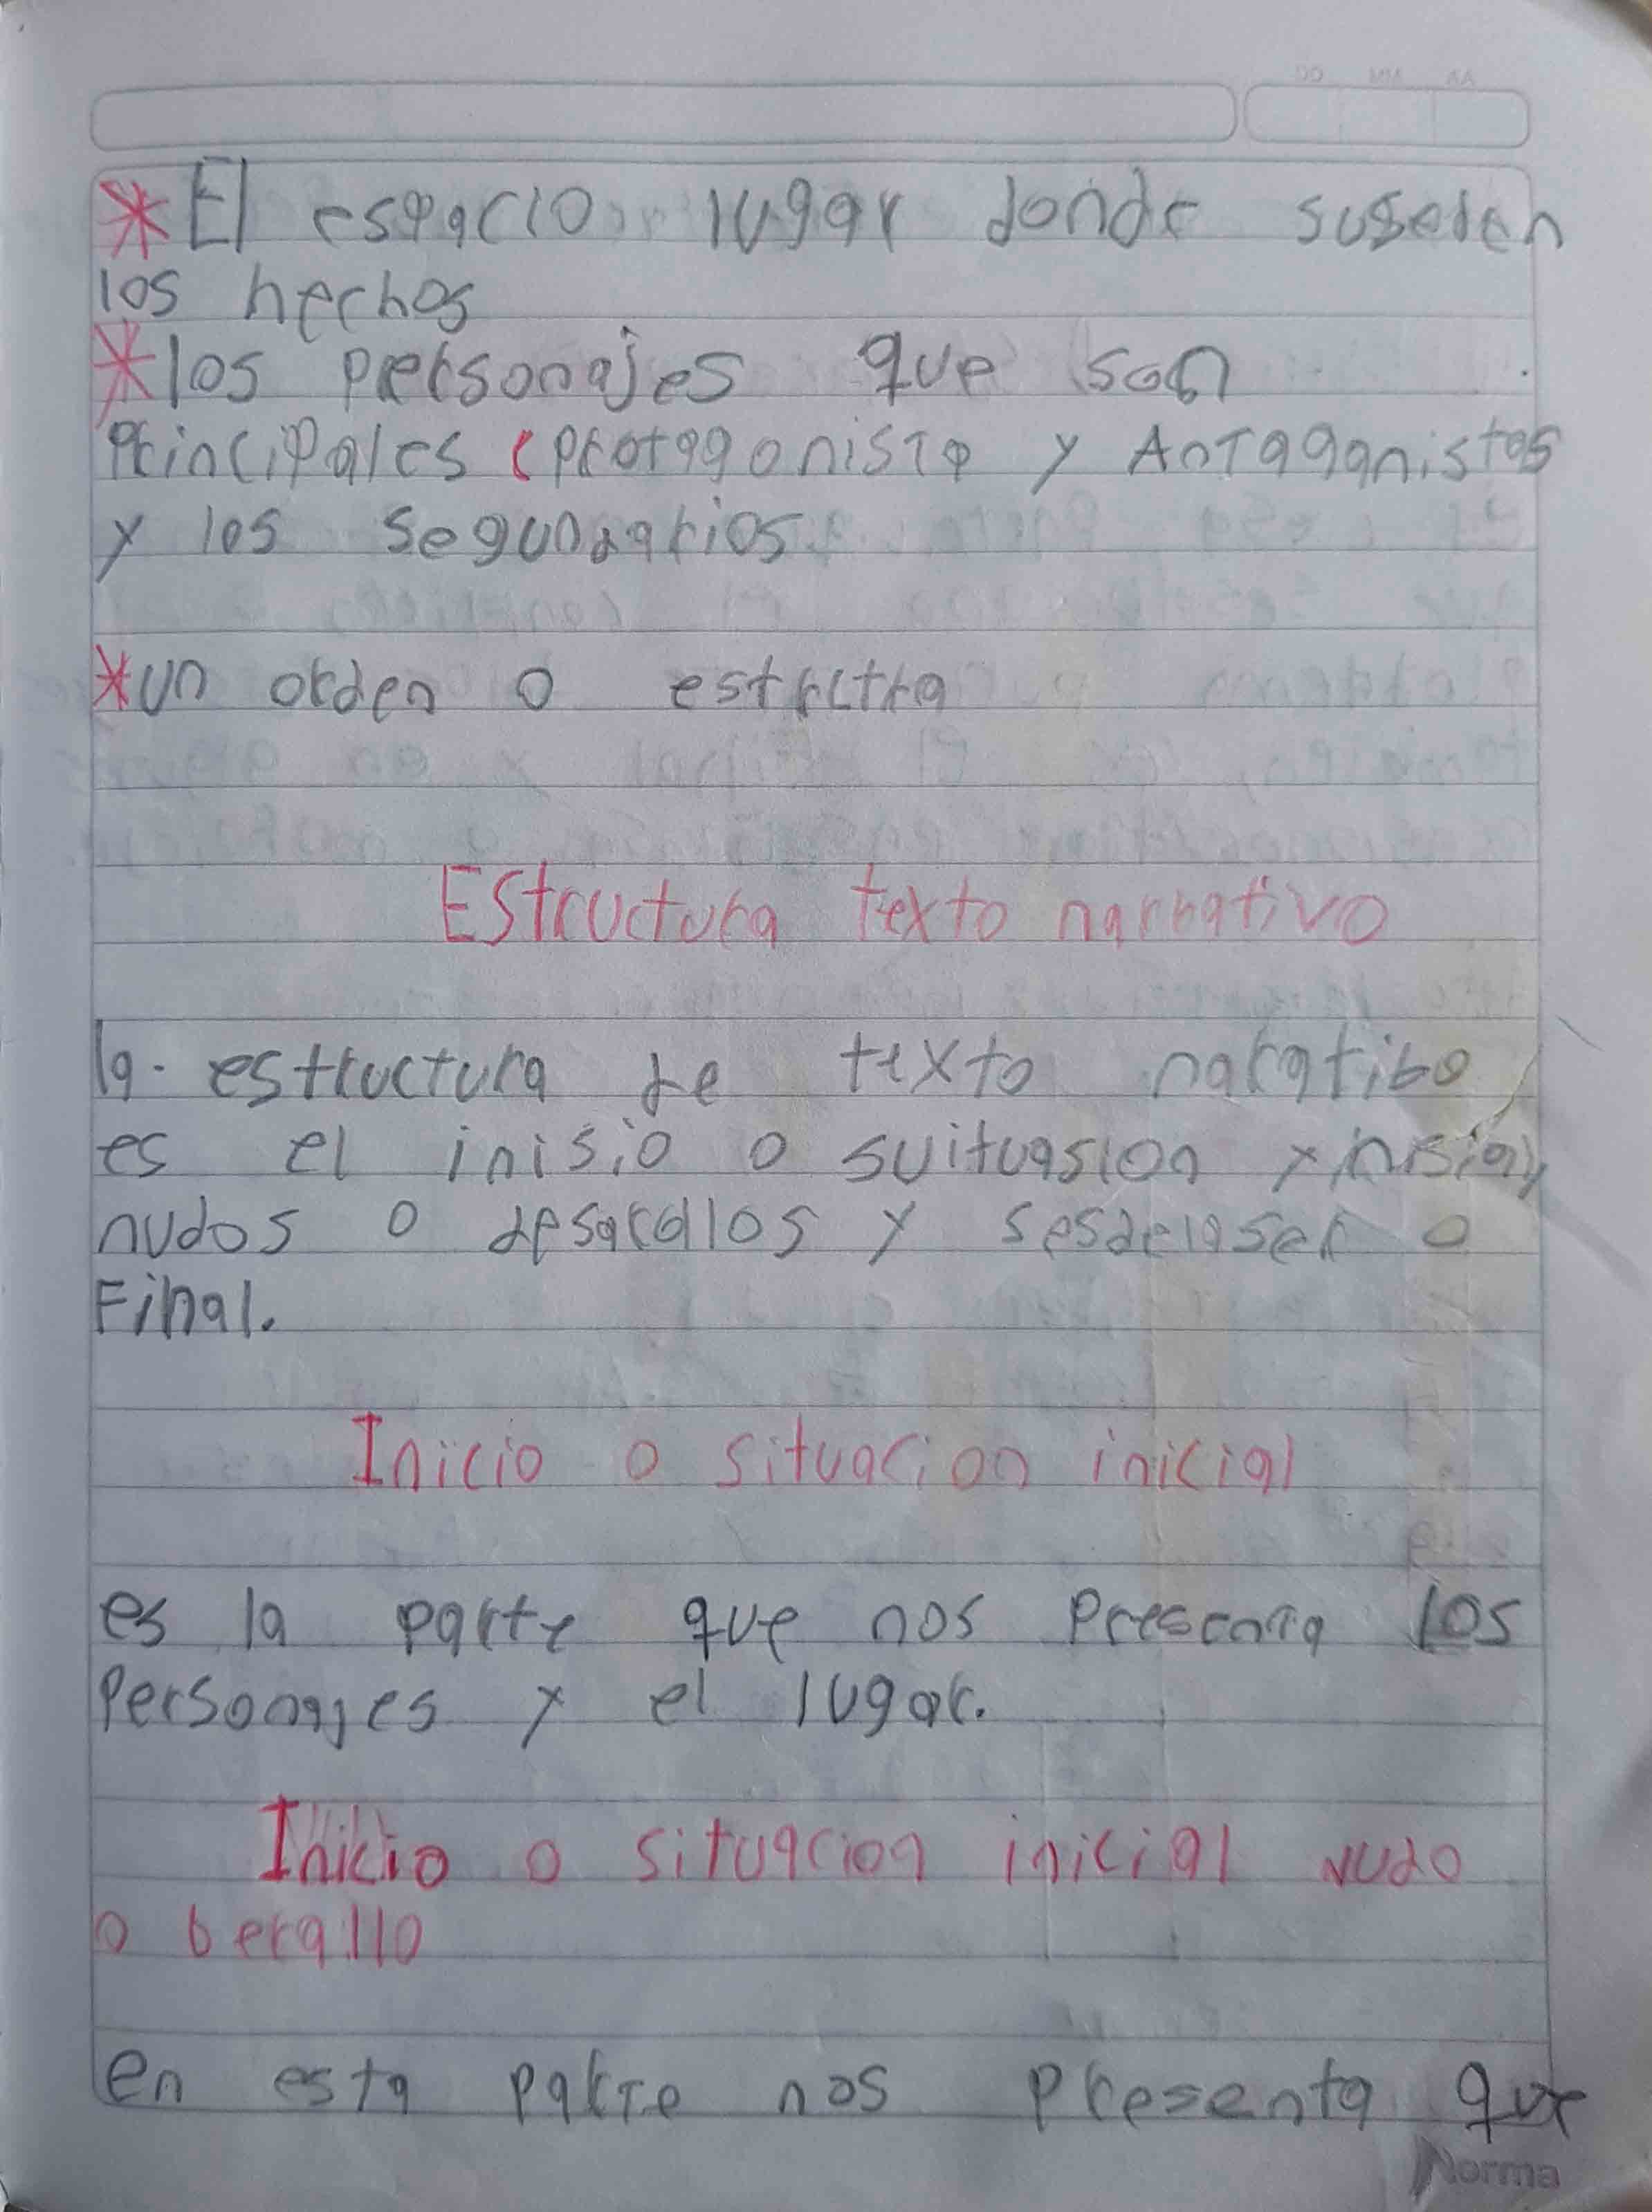 * El espacio lugar donde suseden
los hechos
* los personajes que son
Principales (protagonista y Antagonistas
y los segundarios
* un orden o estrctra
Estructura texto narrativo
la estructura de texto naratibo
es el inisio o suituasion y inisia,
nudos o desarallos y sesdelaser o
Final.
Inicio o situacion inicial
es la parte que nos presenta los
personajes y el lugar.
Inicio o situacion inicial nudo
o berallo
en esta parte nos presenta que
Norma